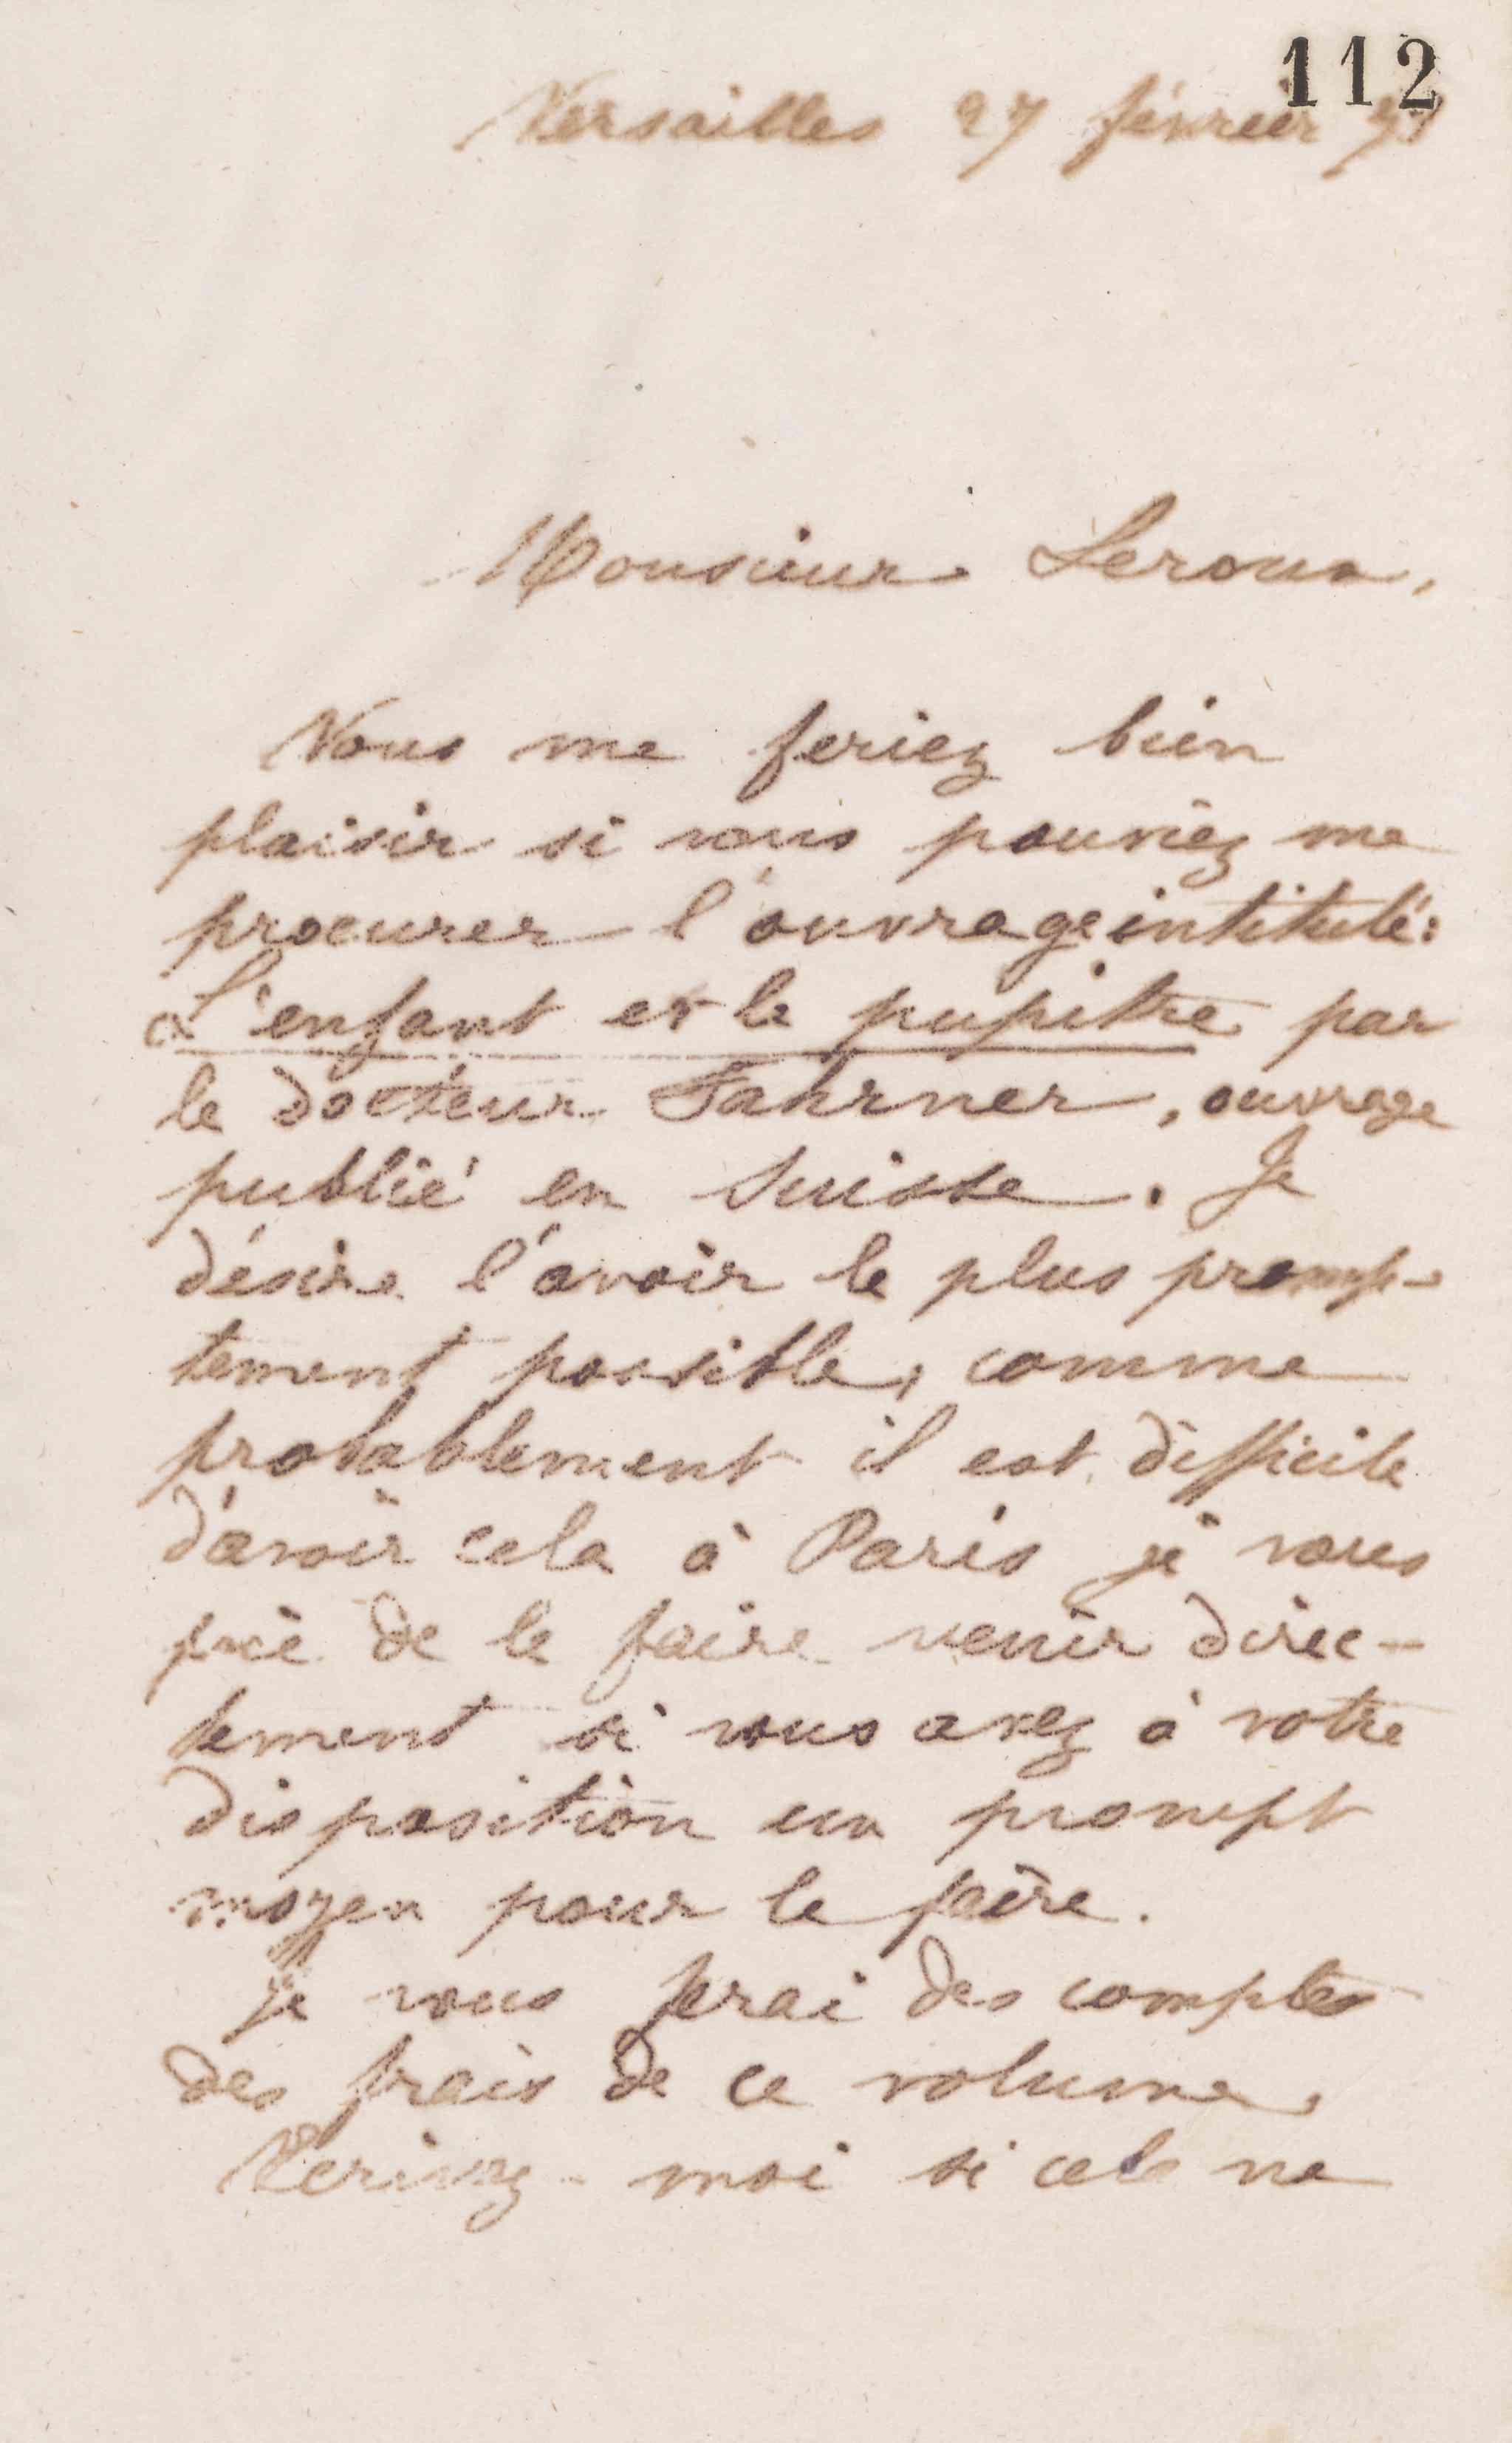 112
Versailles 27 février
Monsieur Leroux,
Vous me feriez bien
plaisir si vous pouviez me
procurer l'ouvrage intitulé:
L'enfant et le pupitre par
le docteur Fahrner, ouvrage
publié en Suisse. Je
désire l'avoir le plus promp-
tement possible, comme
probablement il est difficile
d'avoir cela à Paris je vous
prie de le faire venir direc-
tement si vous avez à votre
disposition un prompt
moyen pour le faire.
Je vous ferai des comptes
des frais de ce volume.
Ecrivez-moi si cela ne